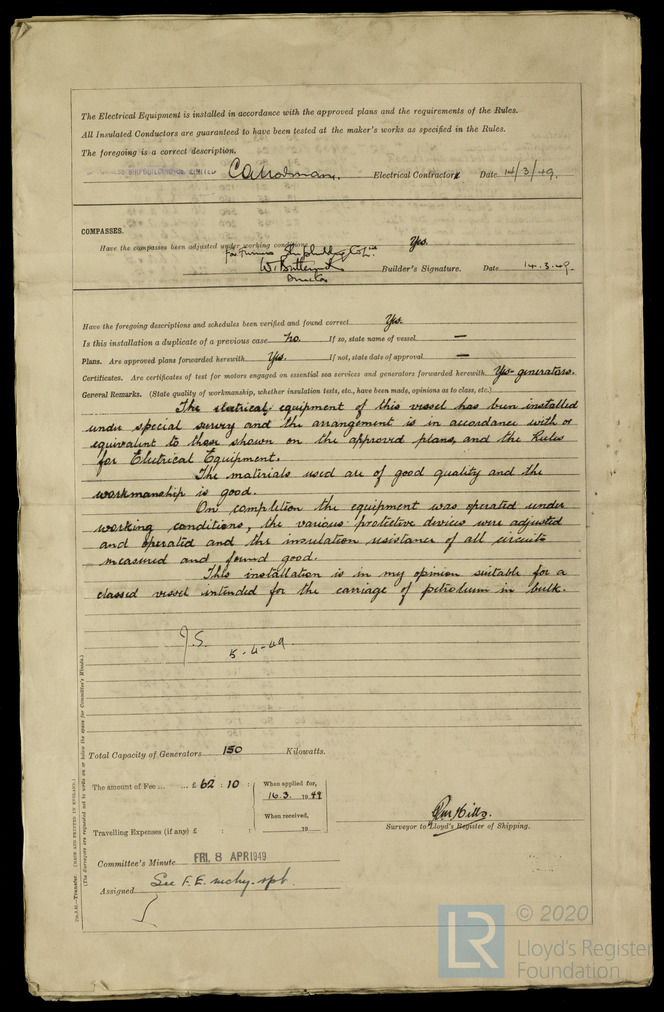 The Electrical Equipment is installed in accordance with the approved plans and the requirements of the Rules.
All Insulated Conductors are guaranteed to have been tested at the maker's works as specified in the Rules.
The foregoing is a correct description.
SHIPBUILDING CO. LIMITED Electrical Contractors. Date 14/3/49.
COMPASSES.
Have the compasses been adjusted under working conditions Yes.
for Furness Shipbuilding Co Ltd.
Director Builder's Signature. Date 14.3.49.
Have the foregoing descriptions and schedules been verified and found correct Yes.
Is this installation a duplicate of a previous case No. If so, state name of vessel —
Plans. Are approved plans forwarded herewith Yes. If not, state date of approval —
Certificates. Are certificates of test for motors engaged on essential sea services and generators forwarded herewith Yes - generators.
General Remarks. (State quality of workmanship, whether insulation tests, etc., have been made, opinions as to class, etc.)
The electrical equipment of this vessel has been installed
under special survey and the arrangement is in accordance with or
equivalent to those shown on the approved plans, and the Rules
for Electrical Equipment.
The materials used are of good quality and the
workmanship is good.
On completion the equipment was operated under
working conditions, the various protective devices were adjusted
and operated and the insulation resistance of all circuits
measured and found good.
This installation is in my opinion suitable for a
classed vessel intended for the carriage of petroleum in bulk.
J.S. 5-4-49
Total Capacity of Generators 150 Kilowatts.
The amount of Fee ... ... £ 62 : 10 : When applied for,
16.3. 1949
When received,
Travelling Expenses (if any) £ : : 19
Surveyor to Lloyd's Register of Shipping.
Committee's Minute FRI. 8 APR 1949
Assigned See F.E. mchy. rpt.
Transfer. (MADE AND PRINTED IN ENGLAND.)
(The Surveyors are requested not to write on or below the space for Committee's Minute.)
LR © 2020
Lloyd's Register
Foundation